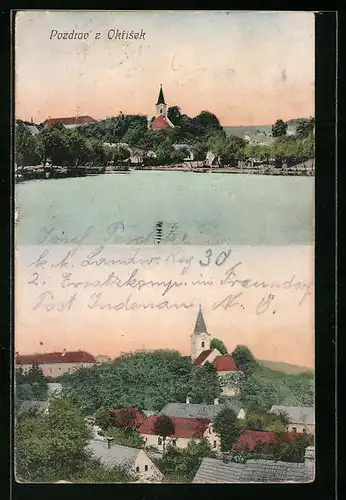 Pozdrav z Okříšek
Josef
k. k. Landw. Reg 30
2. Ersatzkomp. in Fraundorf
Post Indenau N. Ö.